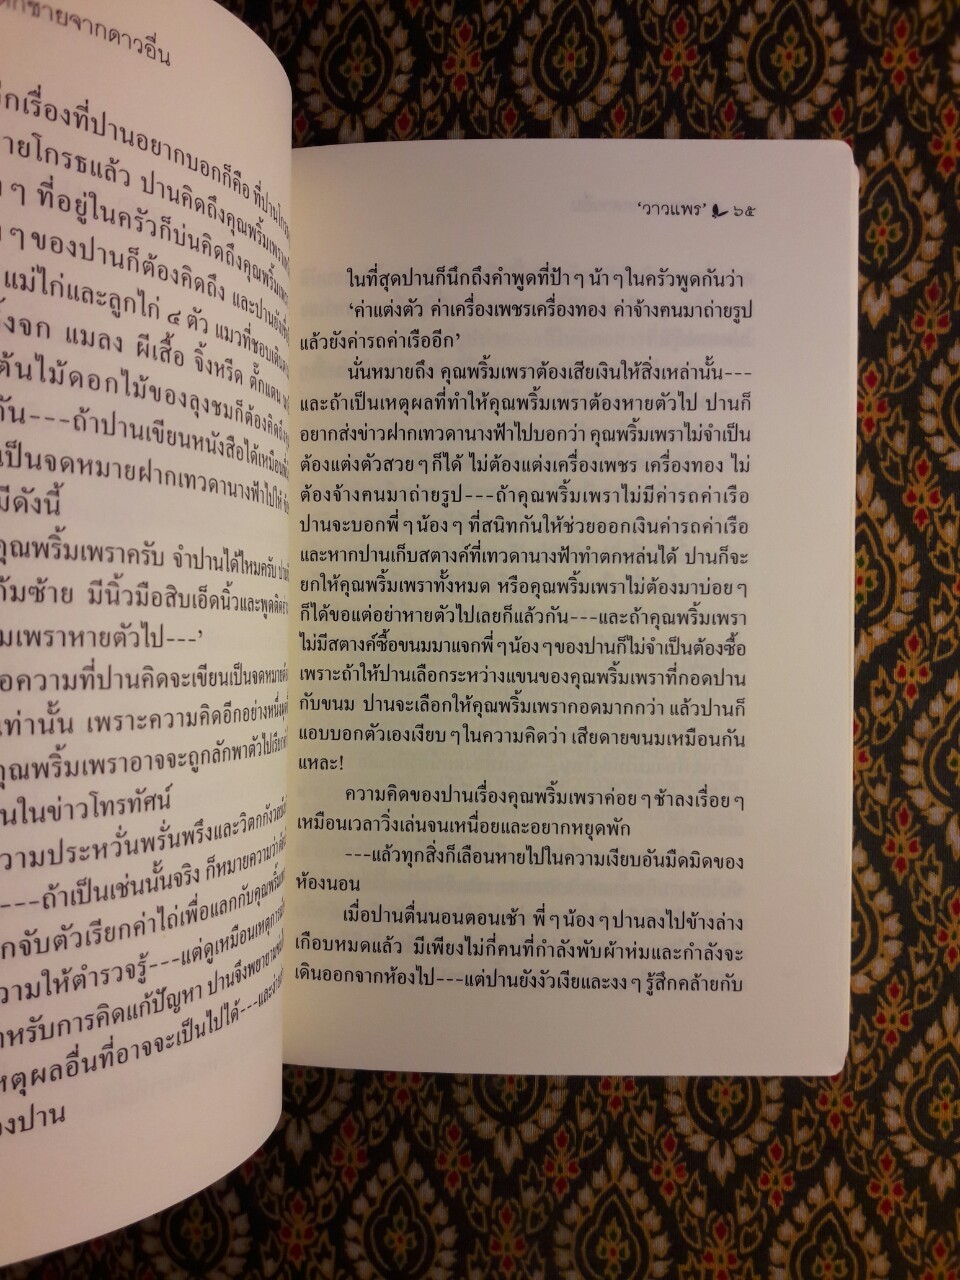 กชายจากดาวอื่น
กเรื่องที่ปานอยากบอกก็คือ ที่ปานโกรธ
ายโกรธแล้ว ปานคิดถึงคุณพริ้มเพรา
ๆ ที่อยู่ในครัวก็บ่นคิดถึงคุณพริ้มเพรา
ๆ ของปานก็ต้องคิดถึง และปานยัง
แม่ไก่และลูกไก่ ๔ ตัว แมวที่ชอบเดิน
้งจก แมลง ผีเสื้อ จิ้งหรีด ตั๊กแตน
ต้นไม้ดอกไม้ของลุงชมก็ต้องคิดถึง
กัน---ถ้าปานเขียนหนังสือได้เหมือน
เป็นจดหมายฝากเทวดานางฟ้าไปให้
มีดังนี้
คุณพริ้มเพราครับ จำปานได้ไหมครับ
ก้มซ้าย มีนิ้วมือสิบเอ็ดนิ้วและพูดติด
มเพราหายตัวไป---’
อความที่ปานคิดจะเขียนเป็นจดหมาย
เท่านั้น เพราะความคิดอีกอย่างหนึ่ง
คุณพริ้มเพราอาจจะถูกลักพาตัวไปเรียก
นในข่าวโทรทัศน์
วามประหวั่นพรั่นพรึงและวิตกกังวล
---ถ้าเป็นเช่นนั้นจริง ก็หมายความว่า
กจับตัวเรียกค่าไถ่เพื่อแลกกับคุณพริ้ม
วามให้ตำรวจรู้---แต่ดูเหมือนเหตุการณ์
าหรับการคิดแก้ปัญหา ปานจึงพยายาม
หตุผลอื่นที่อาจจะเป็นไปได้---และ
องปาน
‘วาวแพร’ ๖๕
ในที่สุดปานก็นึกถึงคำพูดที่ป้า ๆ น้า ๆ ในครัวพูดกันว่า
‘ค่าแต่งตัว ค่าเครื่องเพชรเครื่องทอง ค่าจ้างคนมาถ่ายรูป
แล้วยังค่ารถค่าเรืออีก’
นั่นหมายถึง คุณพริ้มเพราต้องเสียเงินให้สิ่งเหล่านั้น---
และถ้าเป็นเหตุผลที่ทำให้คุณพริ้มเพราต้องหายตัวไป ปานก็
อยากส่งข่าวฝากเทวดานางฟ้าไปบอกว่า คุณพริ้มเพราไม่จำเป็น
ต้องแต่งตัวสวย ๆ ก็ได้ ไม่ต้องแต่งเครื่องเพชร เครื่องทอง ไม่
ต้องจ้างคนมาถ่ายรูป---ถ้าคุณพริ้มเพราไม่มีค่ารถค่าเรือ
ปานจะบอกพี่ ๆ น้อง ๆ ที่สนิทกันให้ช่วยออกเงินค่ารถค่าเรือ
และหากปานเก็บสตางค์ที่เทวดานางฟ้าทำตกหล่นได้ ปานก็จะ
ยกให้คุณพริ้มเพราทั้งหมด หรือคุณพริ้มเพราไม่ต้องมาบ่อย ๆ
ก็ได้ขอแต่อย่าหายตัวไปเลยก็แล้วกัน---และถ้าคุณพริ้มเพรา
ไม่มีสตางค์ซื้อขนมมาแจกพี่ ๆ น้อง ๆ ของปานก็ไม่จำเป็นต้องซื้อ
เพราะถ้าให้ปานเลือกระหว่างแขนของคุณพริ้มเพราที่กอดปาน
กับขนม ปานจะเลือกให้คุณพริ้มเพรากอดมากกว่า แล้วปานก็
แอบบอกตัวเองเงียบ ๆ ในความคิดว่า เสียดายขนมเหมือนกัน
แหละ!
ความคิดของปานเรื่องคุณพริ้มเพราค่อย ๆ ช้าลงเรื่อย ๆ
เหมือนเวลาวิ่งเล่นจนเหนื่อยและอยากหยุดพัก
---แล้วทุกสิ่งก็เลือนหายไปในความเงียบอันมืดมิดของ
ห้องนอน
เมื่อปานตื่นนอนตอนเช้า พี่ ๆ น้อง ๆ ปานลงไปข้างล่าง
เกือบหมดแล้ว มีเพียงไม่กี่คนที่กำลังพับผ้าห่มและกำลังจะ
เดินออกจากห้องไป---แต่ปานยังงัวเงียและงง ๆ รู้สึกคล้ายกับ